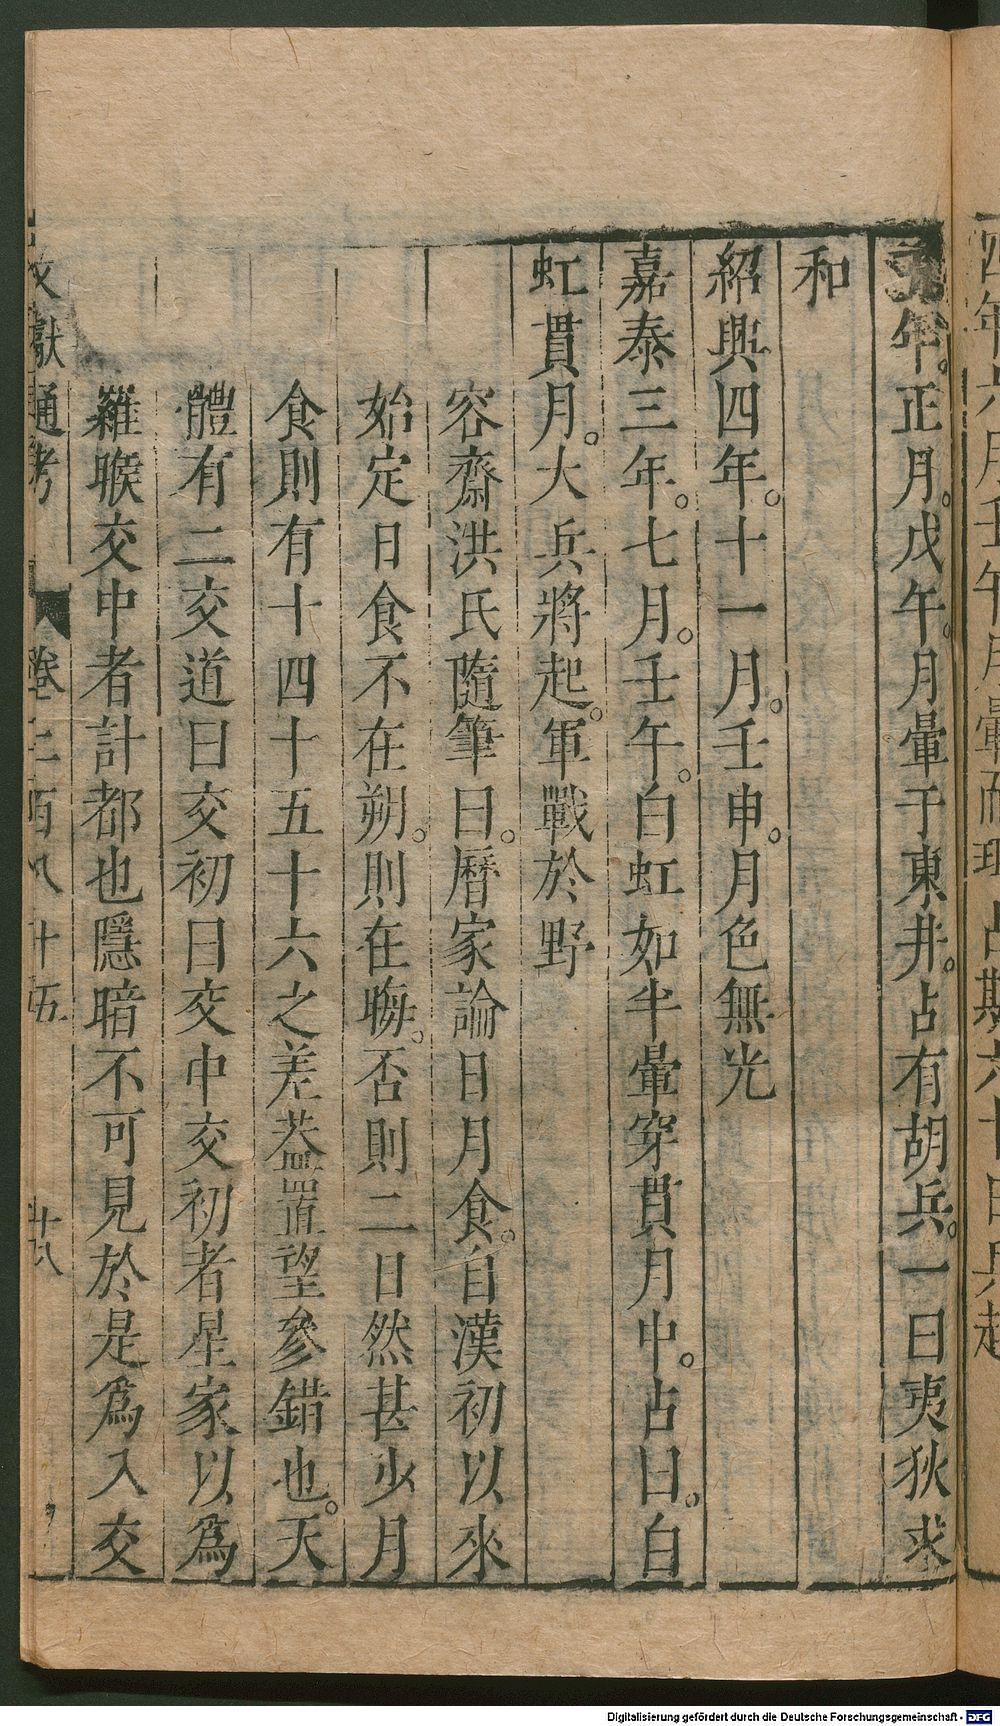 年。正月。戊午。月暈于東井。占有胡兵。一曰夷狄求
和
紹興四年。十一月。壬申。月色無光
嘉泰三年。七月。壬午。白虹如半暈穿貫月中。占曰。白
虹貫月。大兵將起。軍戰於野
容齋洪氏隨筆曰。曆家論日月食。自漢初以來
始定日食不在朔。則在晦。否則二日然甚少月
食則有十四十五十六之差蓋置望參錯也。天
體有二交道曰交初曰交中交初者星家以爲
羅睺交中者計都也隱暗不可見於是爲入交
文獻通考 卷二百八十五 十八
Digitalisierung gefördert durch die Deutsche Forschungsgemeinschaft - DFG